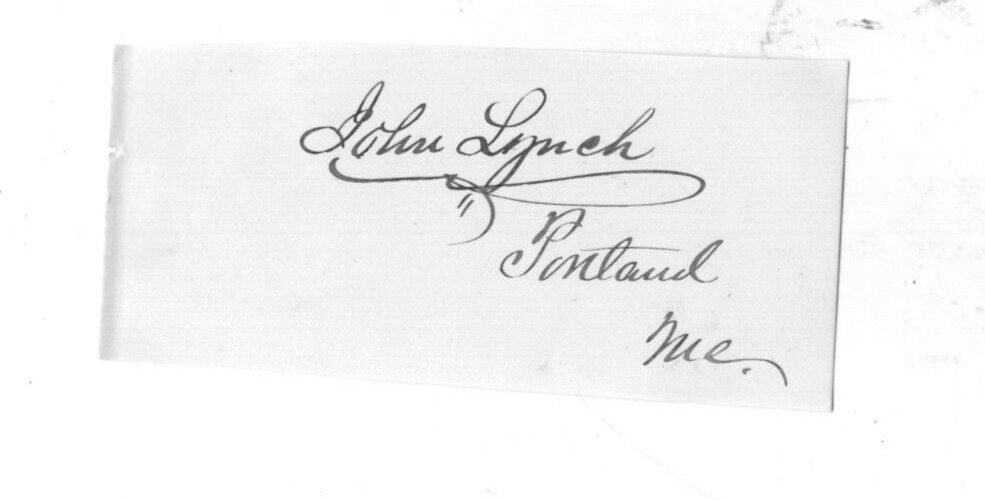 John Lynch
Portland
Me.